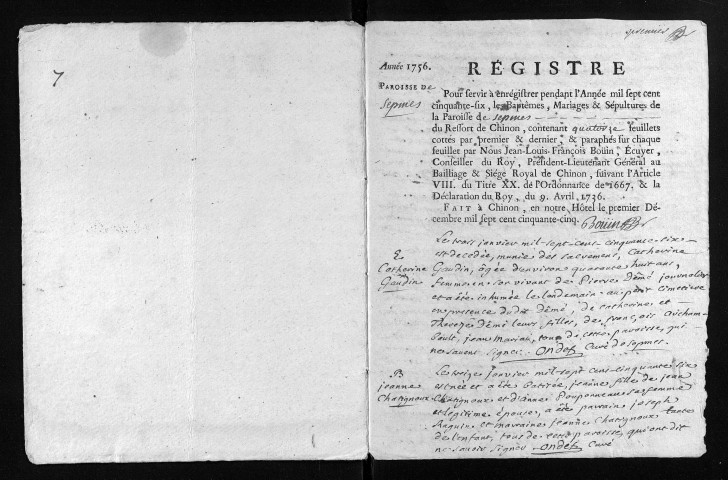 7
premier
Année 1756.
RÉGISTRE
PAROISSE De
Sepmes
Pour servir à enrégistrer pendant l'Année mil sept cent
cinquante-six, les Baptêmes, Mariages & Sépultures de
la Paroisse de Sepmes
du Ressort de Chinon, contenant quatorze feuillets
cottés par premier & dernier, & paraphés sur chaque
feuillet par Nous Jean-Louis-François Boüin, Ecuyer,
Conseiller du Roy, Président-Lieutenant Général au
Bailliage & Siége Royal de Chinon, suivant l'Article
VIII. du Titre XX. de l'Ordonnance de 1667, & la
Déclaration du Roy, du 9. Avril 1736.
FAIT à Chinon, en notre Hôtel le premier Dé-
cembre mil sept cent cinquante-cinq. Boüin
Le trois janvier mil-sept-cent-cinquante-six
est decedée, munie des sacremens, Catherine
E
Catherine
Gaudin
Gaudin, âgée d'environ quarante huit ans,
femme en son vivant de Pierre Démé journalier
et a été inhumée le lendemain au petit cimetiere
en presence dudit Démé, de catherine et
Therese Démé leurs filles, de françois Archam-
bault, jean Mariau, tous de cette paroisse, qui
ne savent signer. Ondet Curé de Sepmes.
B
jeanne
Chatignoux
Le treize janvier mil-sept cent-cinquante six
est née et a été batisée, jeanne fille de jean
Chatignoux et d'Anne Pouponneau sa femme
et legitime épouse, a été parrain joseph
et marraine jeanne Chatignoux tante
de l'enfant, tous de cette paroisse, qui ont dit
ne savoir signer Ondet Curé